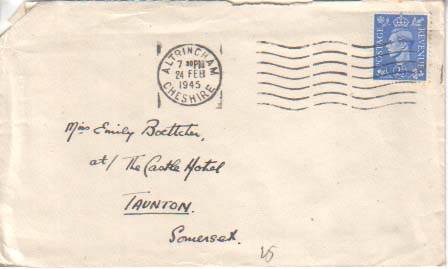 ALTRINCHAM
7 30PM
24 FEB
1945
CHESHIRE
POSTAGE
REVENUE
Miss Emily Boettcher,
at/ The Castle Hotel
TAUNTON.
Somerset.